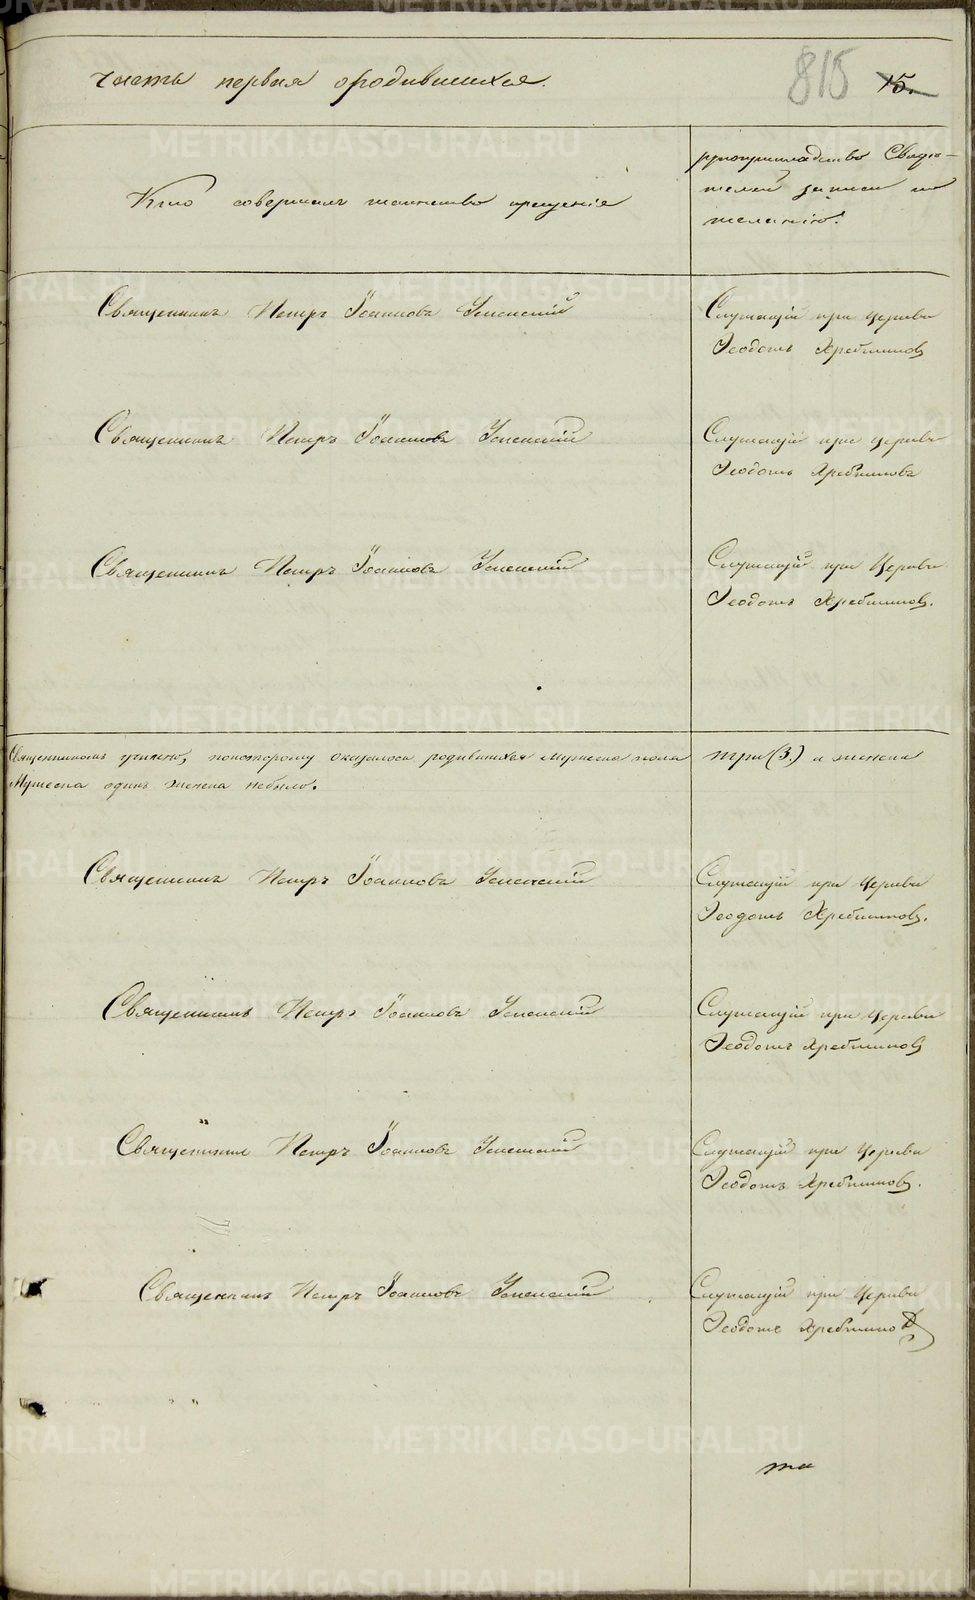 часть первая ородившихся.
815 15.
Кто совершалъ таинство крещенія
рукоприкладство Свиде-
телей записи по
желанію.
Священникъ Петръ Іоанновъ Успенскій
Служащій при церкви
Ѳеодотъ Хребтиковъ
Священникъ Петръ Іоанновъ Успенскій
Служащій при церкви
Ѳеодотъ
Священникъ Петръ Іоанновъ Успенскій
Служащій при Церкви
Ѳеодотъ
Священникомъ учинено, покоторому оказалося родившихся Мужеска пола три (3.) а женска
Мужеска одинъ женска небыло.
Священникъ Петръ Іоанновъ Успенскій
Служащій при Церкви
Ѳеодотъ
Священникъ Петръ Іоанновъ Успенскій
Служащій при Церкви
Ѳеодотъ
Священникъ Петръ Іоанновъ Успенскій
Служащій при Церкви
Ѳеодотъ
Священникъ Петръ Іоанновъ Успенскій
Служащій при Церкви
Ѳеодотъ
METRIKI.GASO-URAL.RU